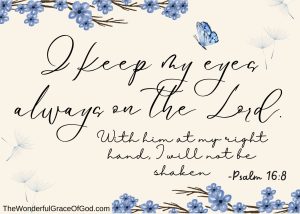 I keep my eyes
always on the Lord.
With him at my right
hand, I will not be
shaken
-Psalm 16:8
TheWonderfulGraceOfGod.com